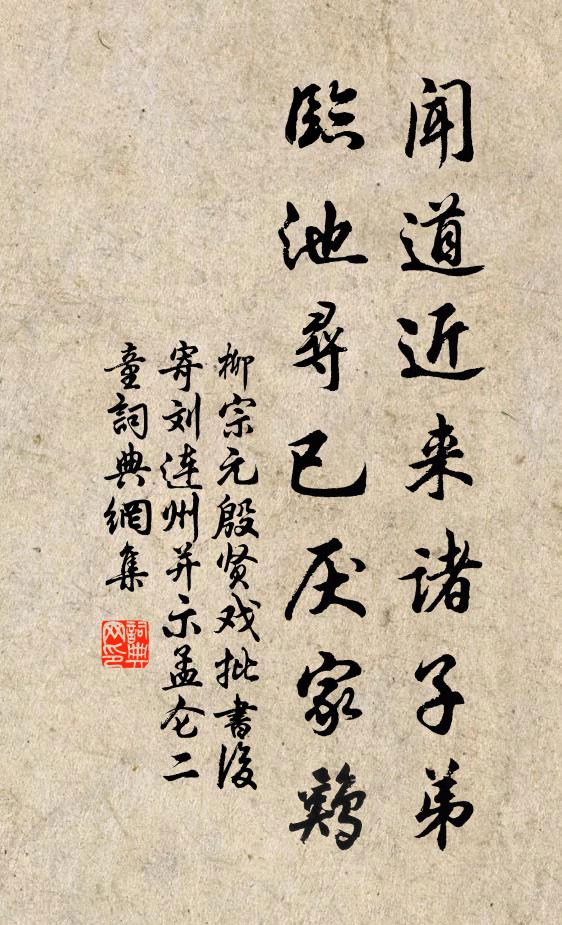 闻道近来诸子弟
臨池尋已厌家鷄
柳宗元殷贤戏批書後
寄刘连州并示孟仑二
童詞典網集
詞典网印